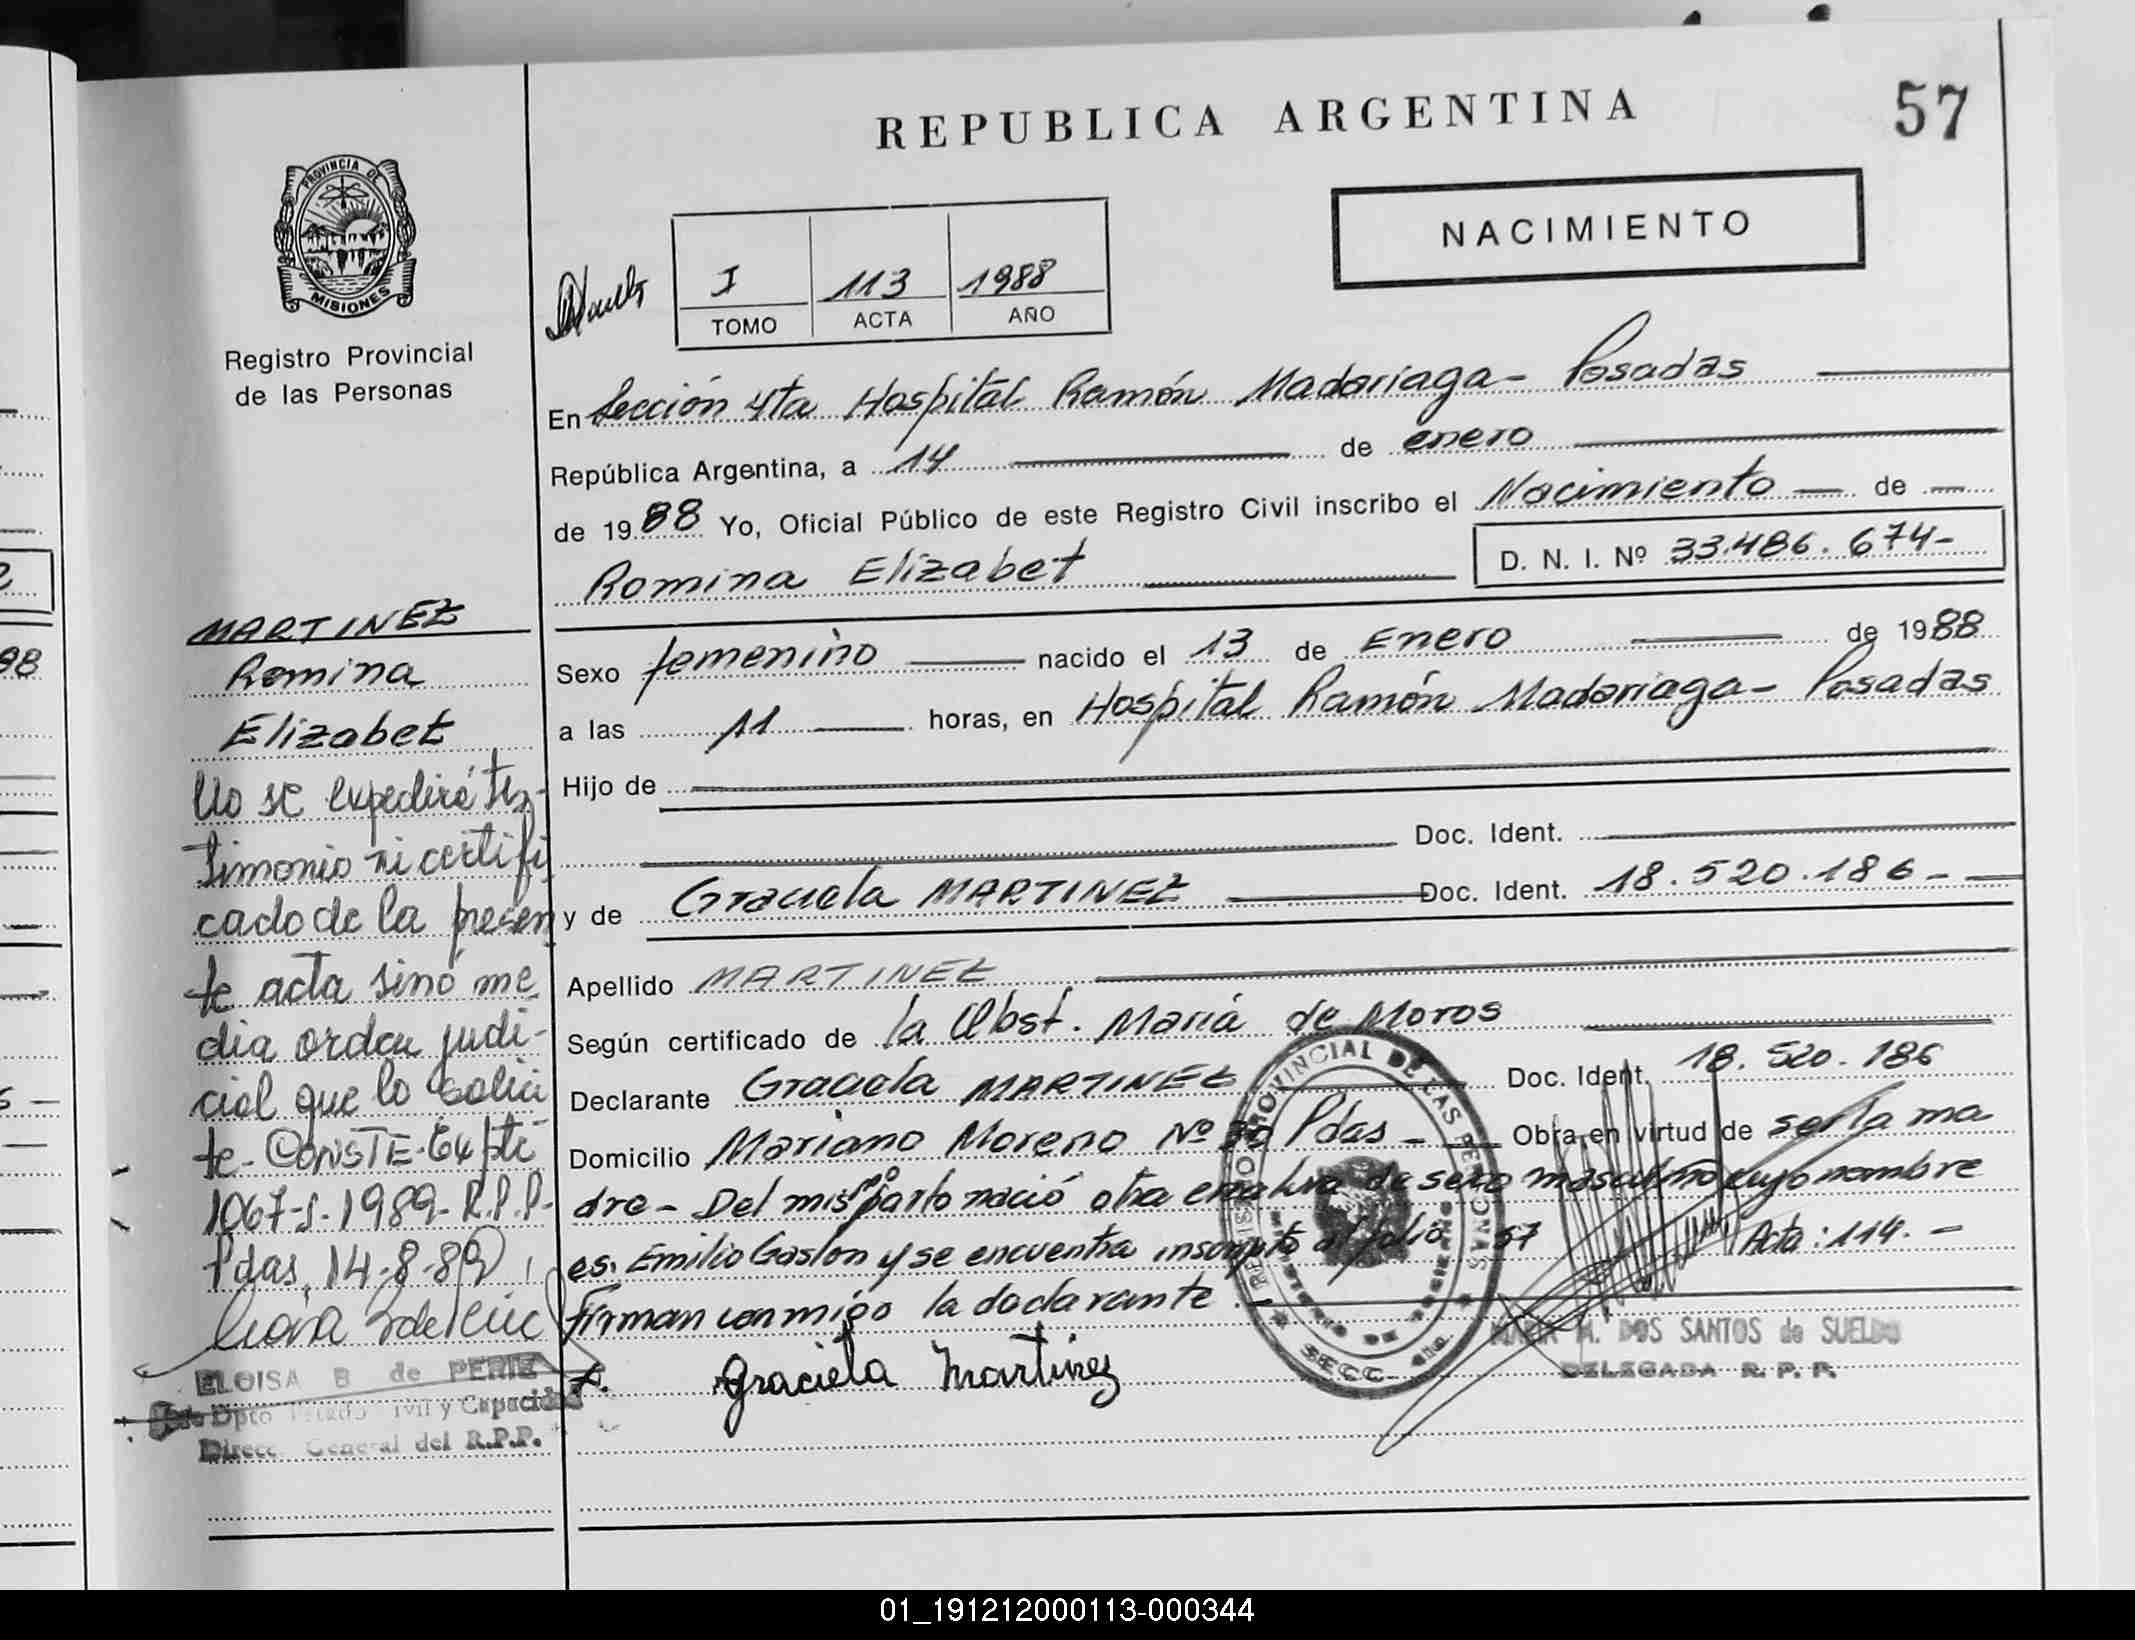 REPUBLICA ARGENTINA
57
NACIMIENTO
I 113 1988
TOMO ACTA AÑO
PROVINCIA DE
MISIONES
Registro Provincial
de las Personas
En Sección 4ta Hospital Ramón Madariaga - Posadas
República Argentina, a 14 de enero
de 1988 Yo, Oficial Público de este Registro Civil inscribo el Nacimiento de
Romina Elizabet D. N. I. Nº 33.486.674-
Sexo femenino nacido el 13 de Enero de 1988
a las 11 horas, en Hospital Ramón Madariaga - Posadas
Hijo de
Doc. Ident.
y de Graciela MARTINEZ Doc. Ident. 18.520.186-
Apellido MARTINEZ
Según certificado de la Obst. María de Moros
Declarante Graciela MARTINEZ Doc. Ident. 18.520.186
Domicilio Mariano Moreno Nº Pdas - Obra en virtud de ser la ma
dre - Del mismo parto nació otra criatura de sexo masculino cuyo nombre
es. Emilio Gaston y se encuentra inscripto al folio 57 Acta: 114.-
Firman conmigo la declarante.
Graciela Martinez
REGISTRO PROVINCIAL DE LAS PERSONAS
MINISTERIO DE GOBIERNO
SECC. 4ta.
MARIA M. DOS SANTOS de SUELDO
DELEGADA R. P. P.
MARTINEZ
Romina
Elizabet
No se expedirá tes-
timonio ni certifi
cado de la presen
te acta sinó me
dia orden judi-
cial que lo solici
te - CONSTE - Expte
1067-S-1989-R.P.P-
Pdas, 14-8-89
ELOISA B de PERIE
Dpto Estado Civil y Capacidad
Direcc. General del R.P.P.
98
01_191212000113-000344